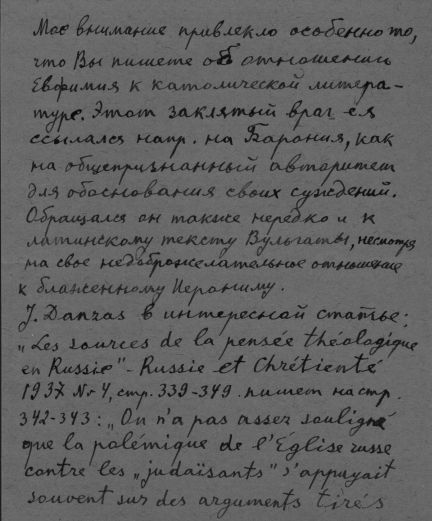 Мое внимание привлекло особенно то,
что Вы пишете об отношении
Евфимия к католической литера-
туре. Этот заклятый враг ея
ссылался напр. на Барония, как
на общепризнанный авторитет
для обоснования своих суждений.
Обращался он также нередко и к
латинскому тексту Вульгаты, несмотря
на свое недоброжелательное отношение
к блаженному Иерониму.
J. Danzas в интересной статье:
„Les sources de la pensée théologique
en Russie" - Russie et Chrétienté
1937 № 4, стр. 339-349. пишет на стр.
342-343: „On n'a pas assez souligné
que la polémique de l'Eglise russe
contre les „judaïsants" s'appuyait
souvent sur des arguments tirés